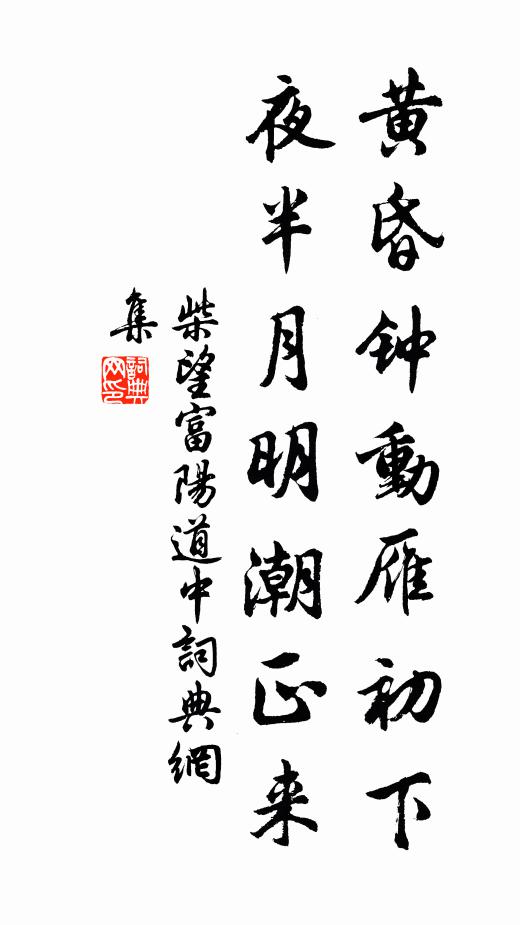 黄昏钟動雁初下
夜半月明潮正来
柴望富陽道中詞典網
集
詞典网印